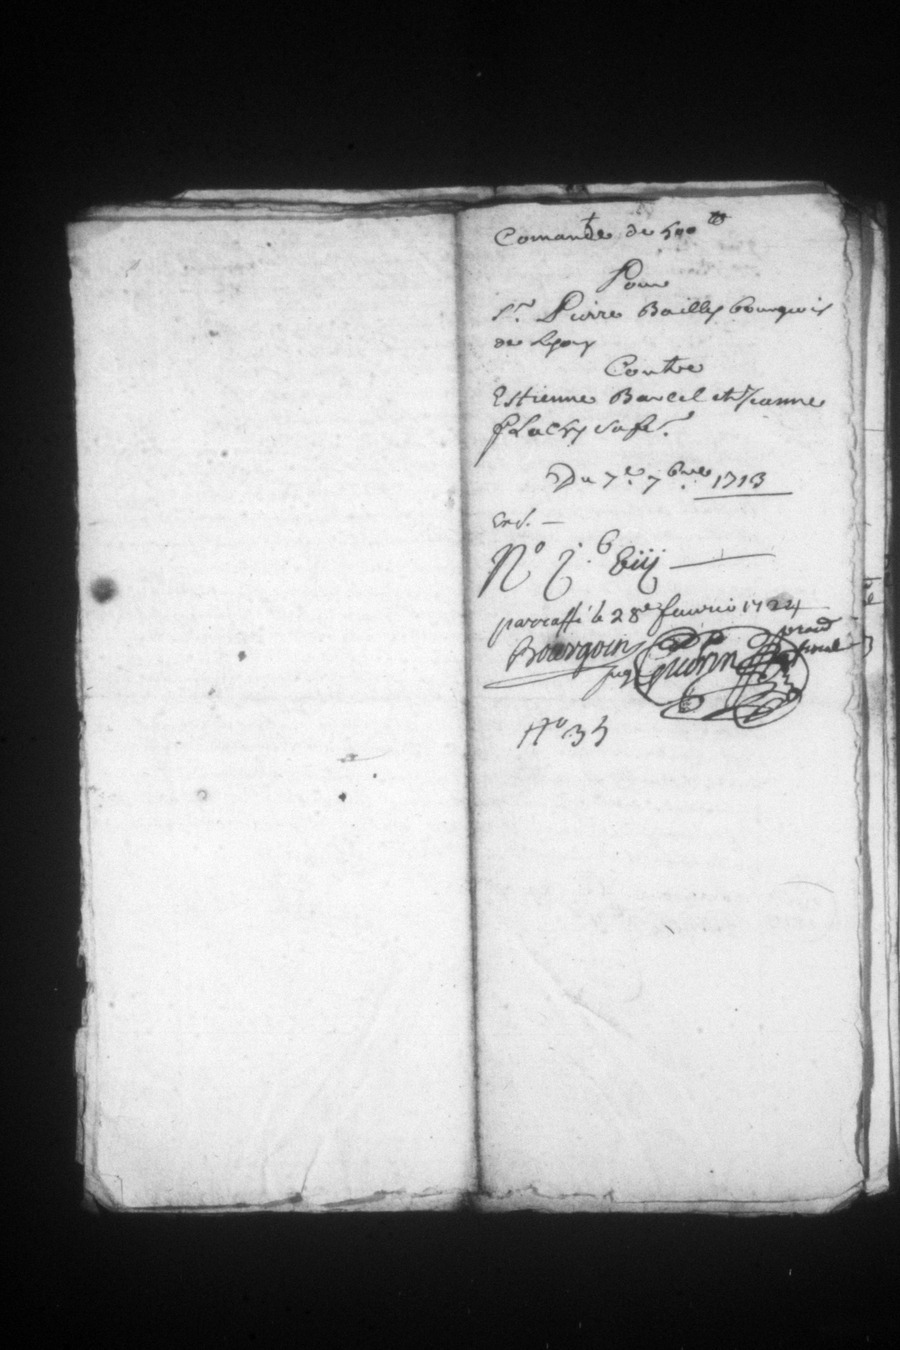 Comande de 500 tt
Pour
Sr. Pierre Bailly bourgeois
de Lyon
Contre
Estienne Barcel et Jeanne
Flachy sa fe.
Du 7e. 7bre 1713
No 2. 6 Biij
parraffé le 28e feuvrie 1724
Bourgoin Guerin
juge
No 35